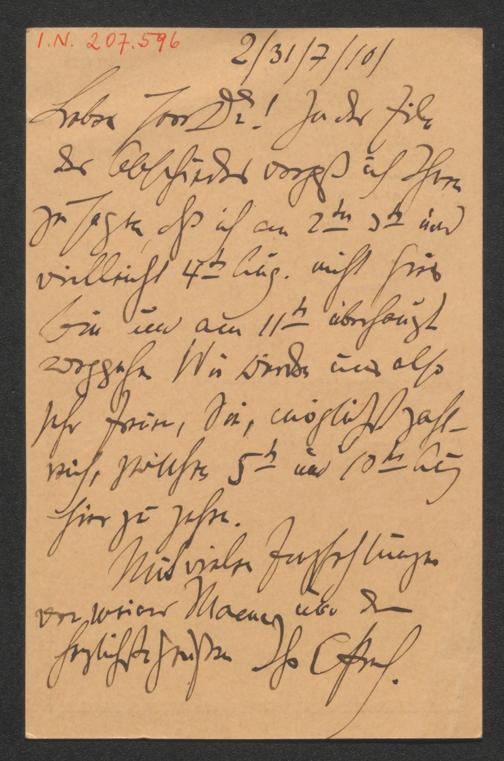 I.N. 207.596
2/31/7/10/
Lieber Herr Dr! In der Eile
des Abschiedes vergaß ich Ihnen
zu sagen, dß ich am 2ten 3ten und
vielleicht 4ten Aug. nicht hier
bin und am 11ten überhaupt
weggehe. Wir würden uns also
sehr freuen, Sie, möglichst zahl-
reich, zwischen 5ten und 10ten Aug
hier zu sehen.
Mit vielen Empfehlungen
von meiner Mama und den
herzlichsten Grüßen Ihr